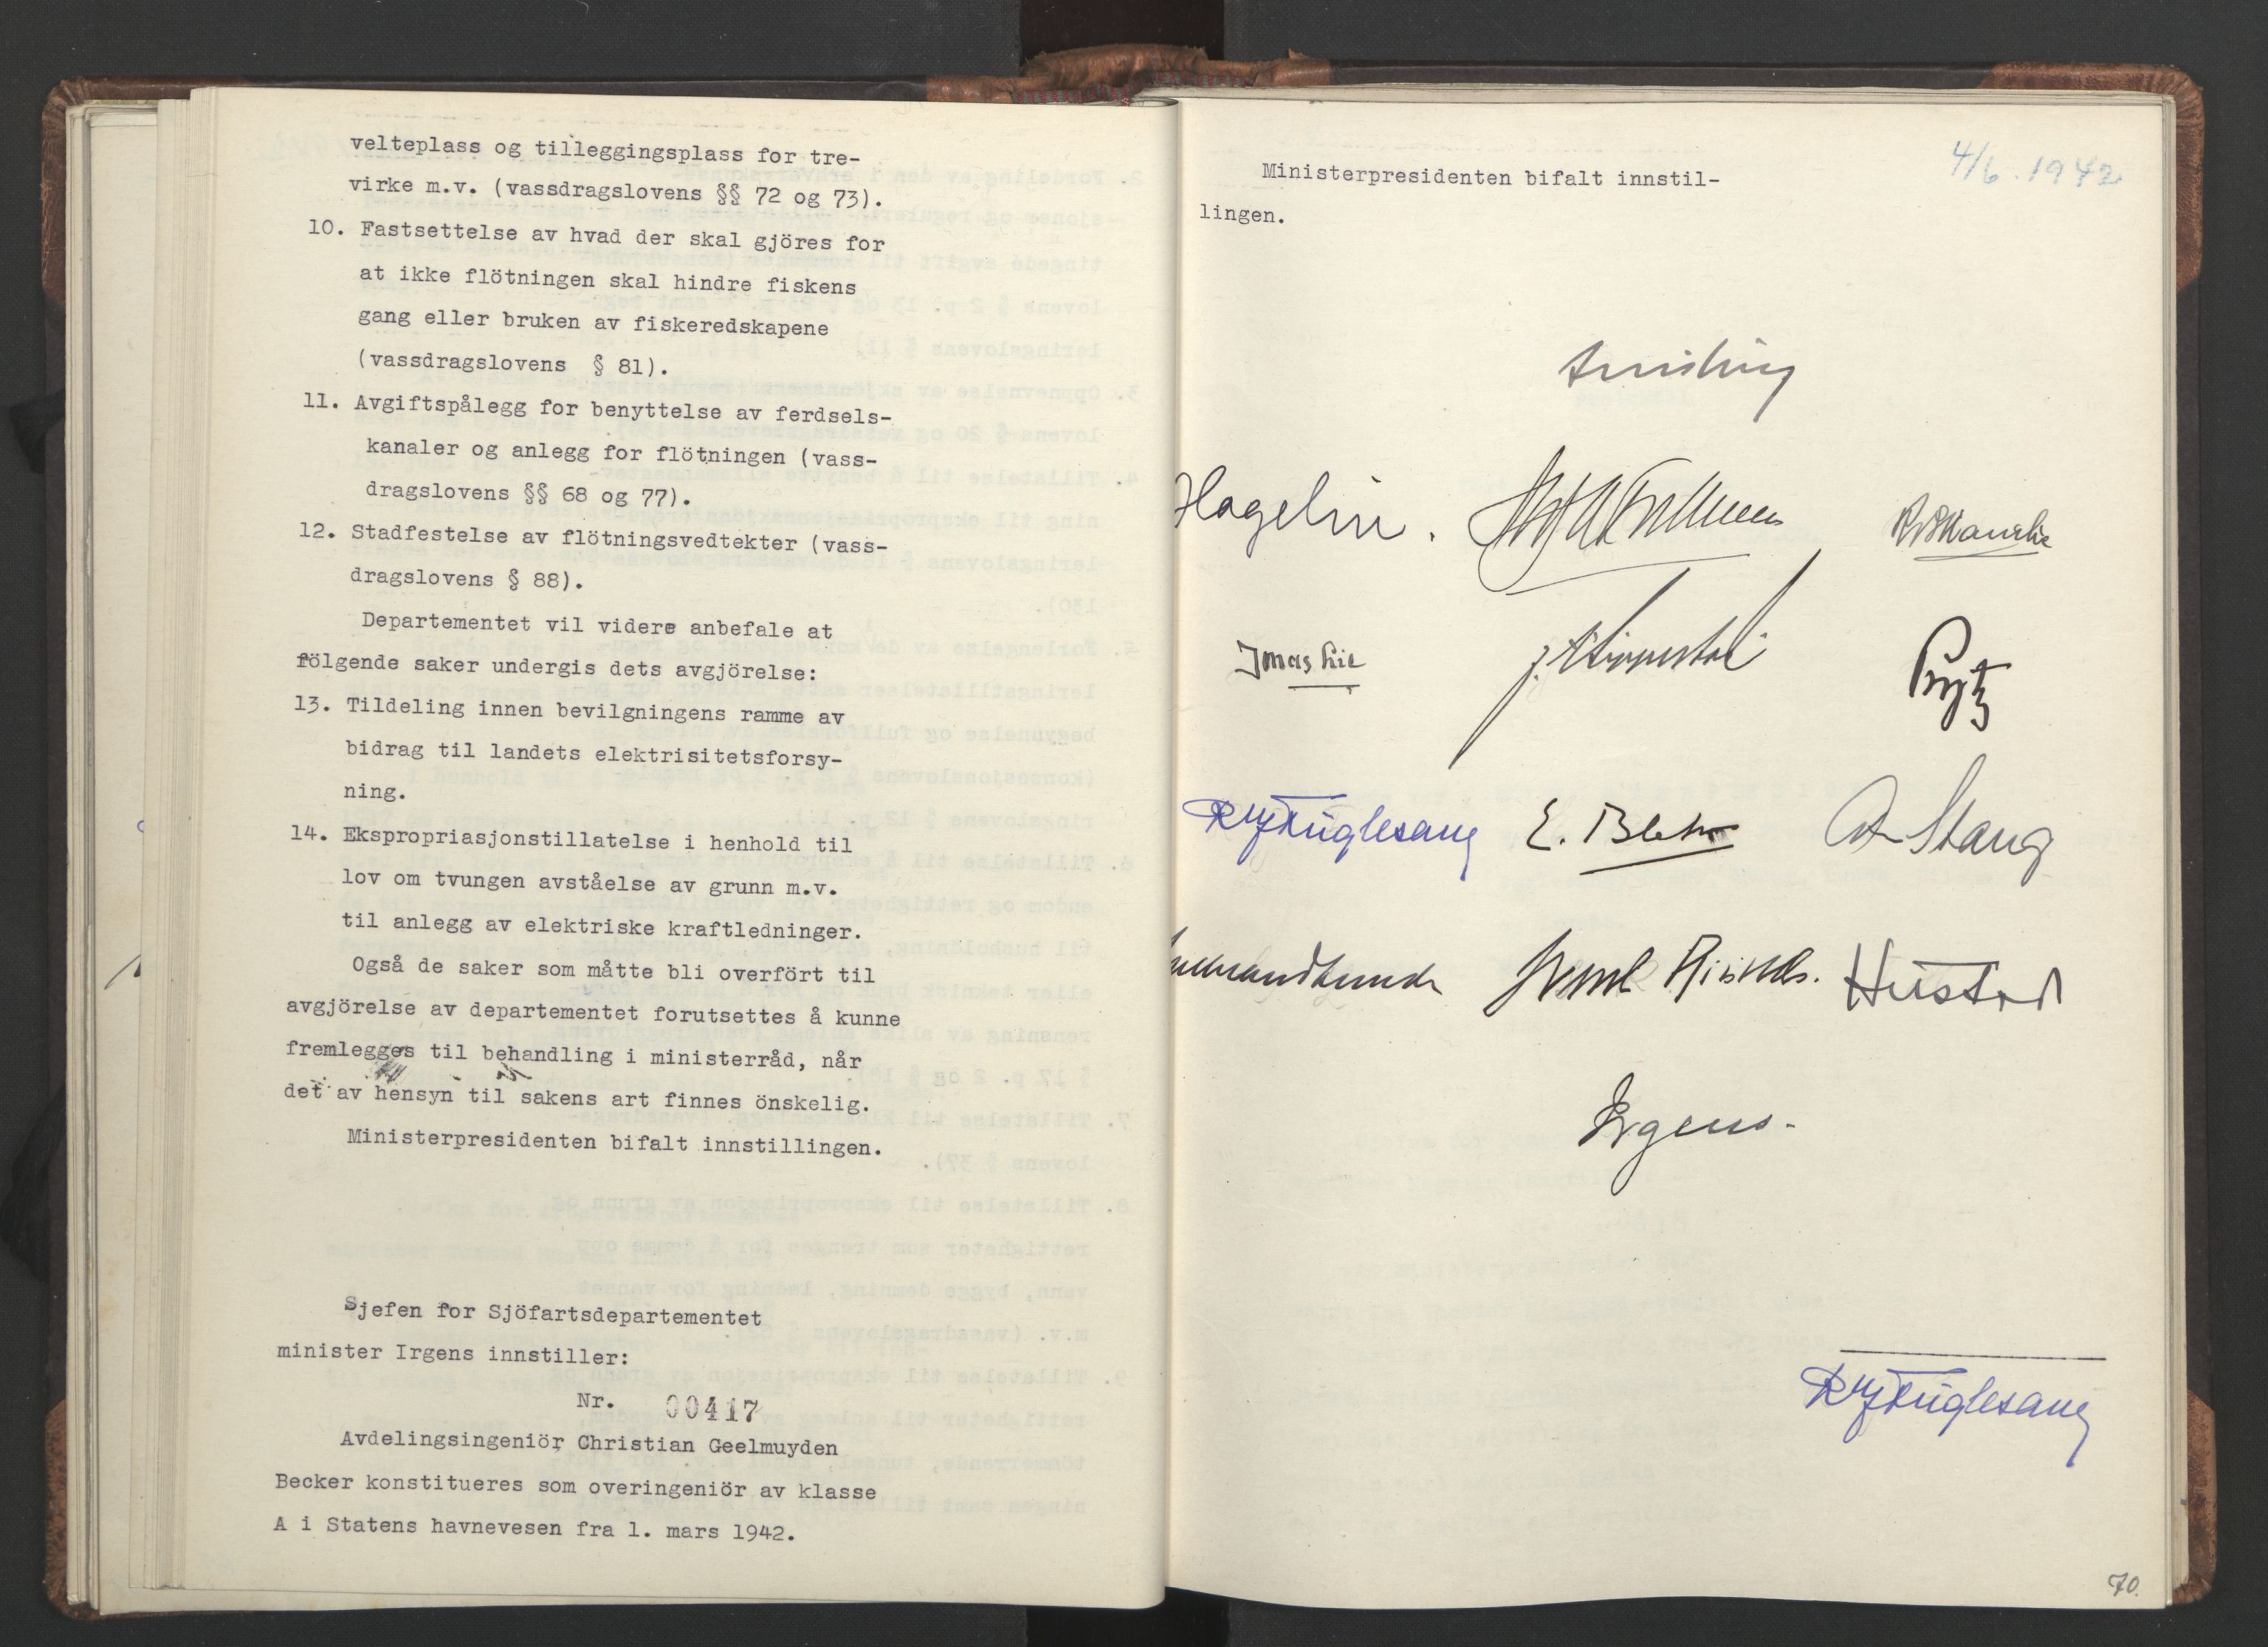 velteplass og tilleggingsplass for tre-
virke m.v. (vassdragslovens §§ 72 og 73).
10. Fastsettelse av hvad der skal gjöres for
at ikke flötningen skal hindre fiskens
gang eller bruken av fiskeredskapene
(vassdragslovens § 81).
11. Avgiftspålegg for benyttelse av ferdsels-
kanaler og anlegg for flötningen (vass-
dragslovens §§ 68 og 77).
12. Stadfestelse av flötningsvedtekter (vass-
dragslovens § 88).
Departementet vil videre anbefale at
fölgende saker undergis dets avgjörelse:
13. Tildeling innen bevilgningens ramme av
bidrag til landets elektrisitetsforsy-
ning.
14. Ekspropriasjonstillatelse i henhold til
lov om tvungen avståelse av grunn m.v.
til anlegg av elektriske kraftledninger.
Også de saker som måtte bli overfört til
avgjörelse av departementet forutsettes å kunne
fremlegges til behandling i ministerråd, når
det av hensyn til sakens art finnes önskelig.
Ministerpresidenten bifalt innstillingen.
Sjefen for Sjöfartsdepartementet
minister Irgens innstiller:
Nr. 00417
Avdelingsingeniör Christian Geelmuyden
Becker konstitueres som overingeniör av klasse
A i Statens havnevesen fra 1. mars 1942.
4/6. 1942
Ministerpresidenten bifalt innstil-
lingen.
Quisling
Hagelin.
R Skancke
Jonas Lie
J. Lippestad
Prytz
R J Fuglesang
E. Blehr
A Stang
Hustad
Irgens.
R J Fuglesang
70.